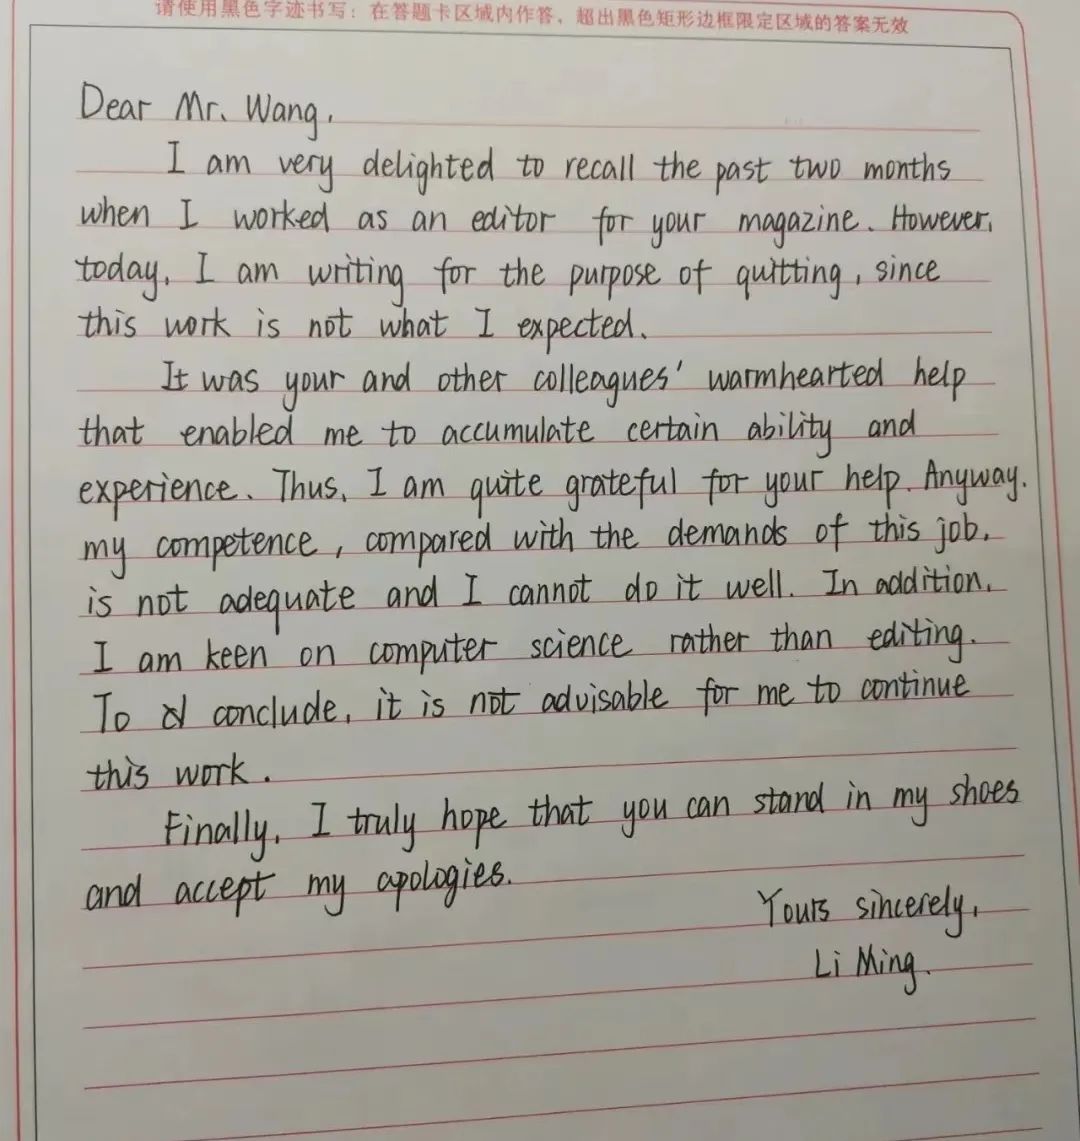 请使用黑色字迹书写：在答题卡区域内作答，超出黑色矩形边框限定区域的答案无效
Dear Mr. Wang,
I am very delighted to recall the past two months
when I worked as an editor for your magazine. However,
today, I am writing for the purpose of quitting, since
this work is not what I expected.
It was your and other colleagues' warmhearted help
that enabled me to accumulate certain ability and
experience. Thus, I am quite grateful for your help. Anyway,
my competence, compared with the demands of this job,
is not adequate and I cannot do it well. In addition,
I am keen on computer science rather than editing.
To conclude, it is not advisable for me to continue
this work.
Finally, I truly hope that you can stand in my shoes
and accept my apologies.
Yours sincerely,
Li Ming.